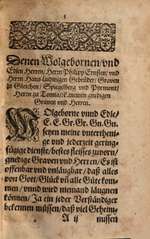 Denen Wolgebornen/vnd
Edlen Herrn/ Herrn Philipp Ernsten/ vnd
Herrn Hans Ludwigen Gebrüder/ Graven
zu Gleichen/ Spiegelberg vnd Pirmont/
Herrn zu Tonna/ meinen gnedigen
Graven vnd Herren.
WOlgeborne vnd Edle/
E. E. Gr. Gr. Gn. Gn.
seyen meine vnterthenige
vnd jederzeit geringfügige
dienste/ bestes fleisses zuvorn/
gnedige Graven vnd Herren/ Es ist
offenbar vnd vnläugbar/ daß alles
von Gott/ Glück vñ alle Güte kommen/
vnnd wird niemand läugnen
können/ Ja ein jeder Verständiger
bekennen müssen/ daß viel Geheim-
A ij nussen